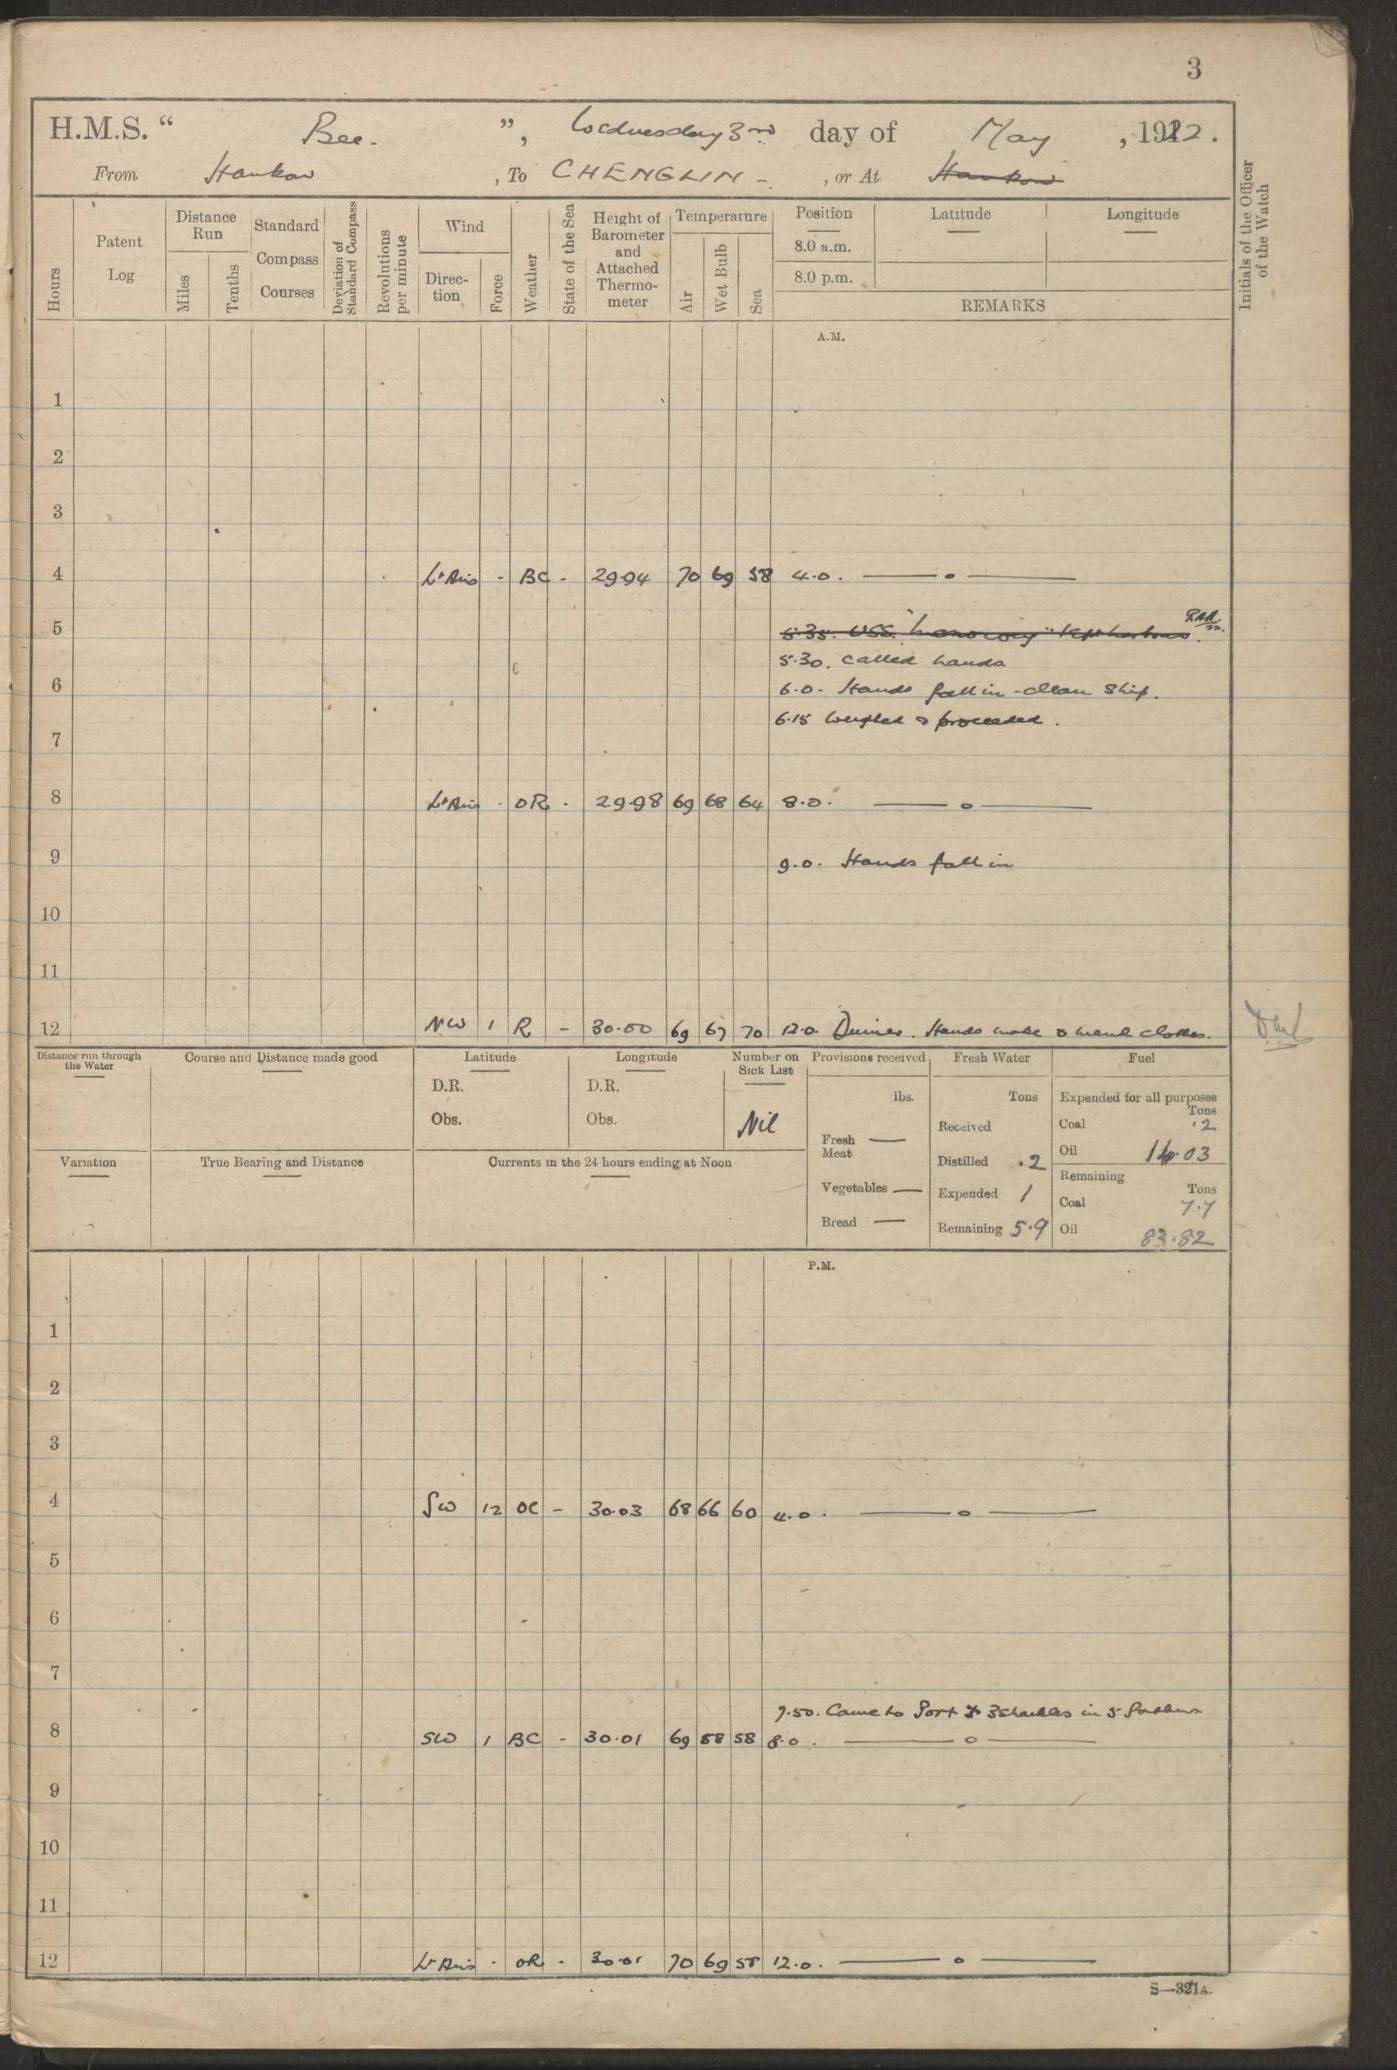 3
H.M.S. " Bee. ", Wednesday 3rd day of May, 1922.
From Hankow, To CHENGLIN -, or At Hankow
Hours
Patent Log
Distance Run
Miles
Tenths
Standard Compass Courses
Deviation of Standard Compass
Revolutions per minute
Wind
Direction
Force
Weather
State of the Sea
Height of Barometer and Attached Thermometer
Temperature
Air
Wet Bulb
Sea
Position
8.0 a.m.
8.0 p.m.
Latitude
Longitude
REMARKS
Initials of the Officer of the Watch
A.M.
1
2
3
4 Lt Airs - BC - 29.94 70 69 58 4.0. —— o ——
5 5.35. USS.
5.30. Called hands
6 6.0. Hands fall in - clean ship.
6.15 Weighed & proceeded.
7
8 Lt Airs - OR - 29.98 69 68 64 8.0. —— o ——
9 9.0. Hands fall in
10
11
12 NW 1 R - 30.00 69 67 70 12.0. Dinner. Hands make & mend clothes.
Distance run through the Water
Course and Distance made good
Latitude
D.R.
Obs.
Longitude
D.R.
Obs.
Number on Sick List
Nil
Provisions received
lbs.
Fresh Meat —
Vegetables —
Bread —
Fresh Water
Tons
Received
Distilled .2
Expended 1
Remaining 5.9
Fuel
Expended for all purposes
Tons
Coal .2
Oil 14.03
Remaining
Tons
Coal 7.7
Oil 83.82
Variation
True Bearing and Distance
Currents in the 24 hours ending at Noon
P.M.
1
2
3
4 SW 12 OC - 30.03 68 66 60 4.0. —— o ——
5
6
7
7.50. Came to Port 3 shackles in 5 fathoms
8 SW 1 BC - 30.01 69 58 58 8.0. —— o ——
9
10
11
12 Lt Airs - OR - 30.01 70 69 58 12.0. —— o ——
S—321A.